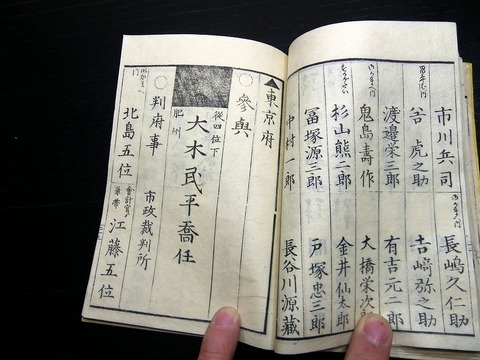 市川兵司
長嶋久仁助
虎之助
吉﨑弥之助
渡邊栄三郎
有吉元二郎
鬼島壽作
大橋栄次
杉山熊二郎
金井仙太郎
冨塚源三郎
戸塚忠三郎
中村一郎
長谷川源藏
▲東京府
○參與
從四位下
肥州
大木民平喬任
○判府事
市政裁判所
北島五位
會計官
兼帶
江藤五位